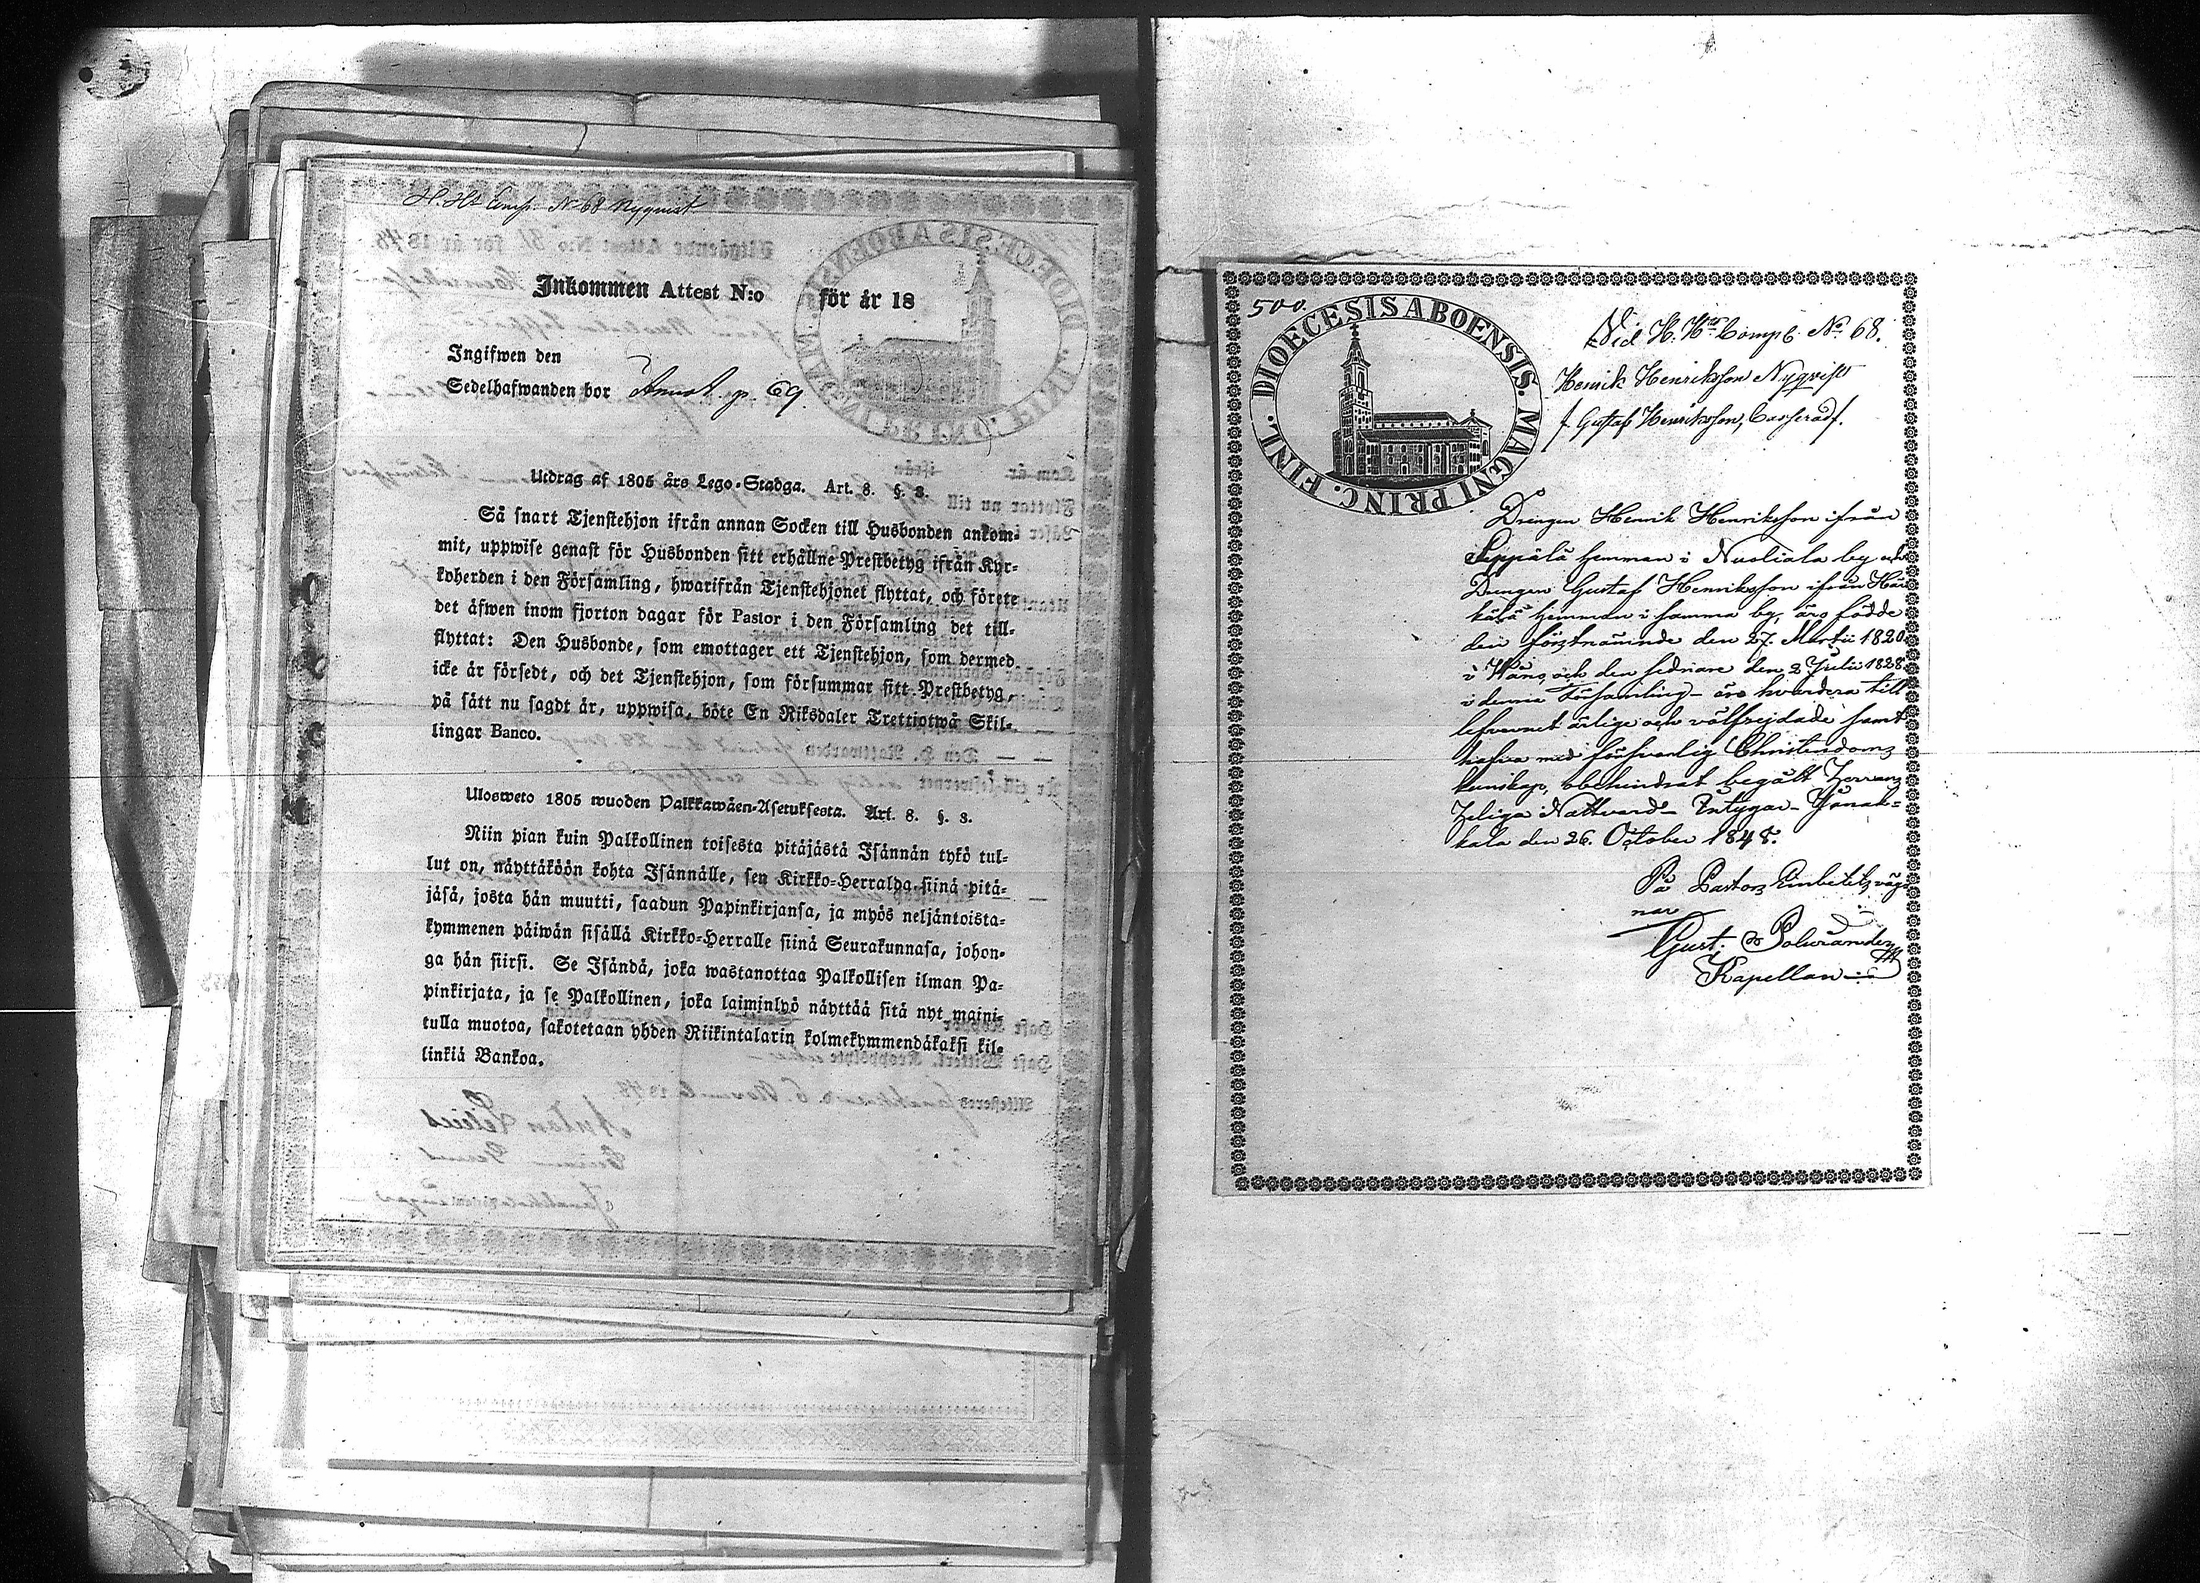 H. H:s Comp. No 68 Nyqvist
Inkommen Attest N:o för år 18
Ingifwen den
Sedelhafwanden bor Annot. p. 69
Utdrag af 1805 års Lego-Stadga. Art. 8. §. 3.
Så snart Tjenstehjon ifrån annan Socken till Husbonden ankom-
mit, uppwise genast för Husbonden sitt erhållne Prestbetyg ifrån Kyr-
koherden i den Församling, hwarifrån Tjenstehjonet flyttat, och förete
det äfwen inom fjorton dagar för Pastor i den Församling det till-
flyttat: Den Husbonde, som emottager ett Tjenstehjon, som dermed
icke är försedt, och det Tjenstehjon, som försummar sitt Prestbetyg,
på sätt nu sagdt är, uppwisa, böte En Riksdaler Trettiotwå Skil-
lingar Banco.
Ulosweto 1805 wuoden Palkkawäen-Asetuksesta. Art. 8. §. 3.
Niin pian kuin Palkollinen toisesta pitäjästä Isännän tykö tul-
lut on, näyttäköön kohta Isännälle, sen Kirkko-Herralda siinä pitä-
jäsä, josta hän muutti, saadun Papinkirjansa, ja myös neljäntoista-
kymmenen päiwän sisällä Kirkko-Herralle siinä Seurakunnasa, johon-
ga hän siirsi. Se Isändä, joka wastanottaa Palkollisen ilman Pa-
pinkirjata, ja se Palkollinen, joka laiminlyö näyttää sitä nyt maini-
tulla muotoa, sakotetaan yhden Riikintalarin kolmekymmendäkaksi kil-
linkiä Bankoa.
500.
DIOECESIS ABOENSIS. MAGNI PRINC. FINL.
Vid H. H:s Comp. No 68.
Henrik Henriksson Nyqvist
f. Gustaf Henriksson, Casserad.
Drengen Henrik Henriksson ifrån
Seppälä hemman i Nuoliala by och
Drengen Gustaf Henriksson ifrån Här
kälä hemman i samma by, äro födde
den förstnämnde den 27. Martii 1820
i Wånå och den sednare den 2 Julii 1828
i denna Församling – äro hvardera till
lefvernet ärlige och välfrejdade samt
hafva med försvarlig Christendoms
kunskap, obehindrat begått Herrans
Heliga Nattvard – Intygar – Janak-
kala den 26. October 1848.
På Pastors Embetets väg
nar
Gust.
Kapellan